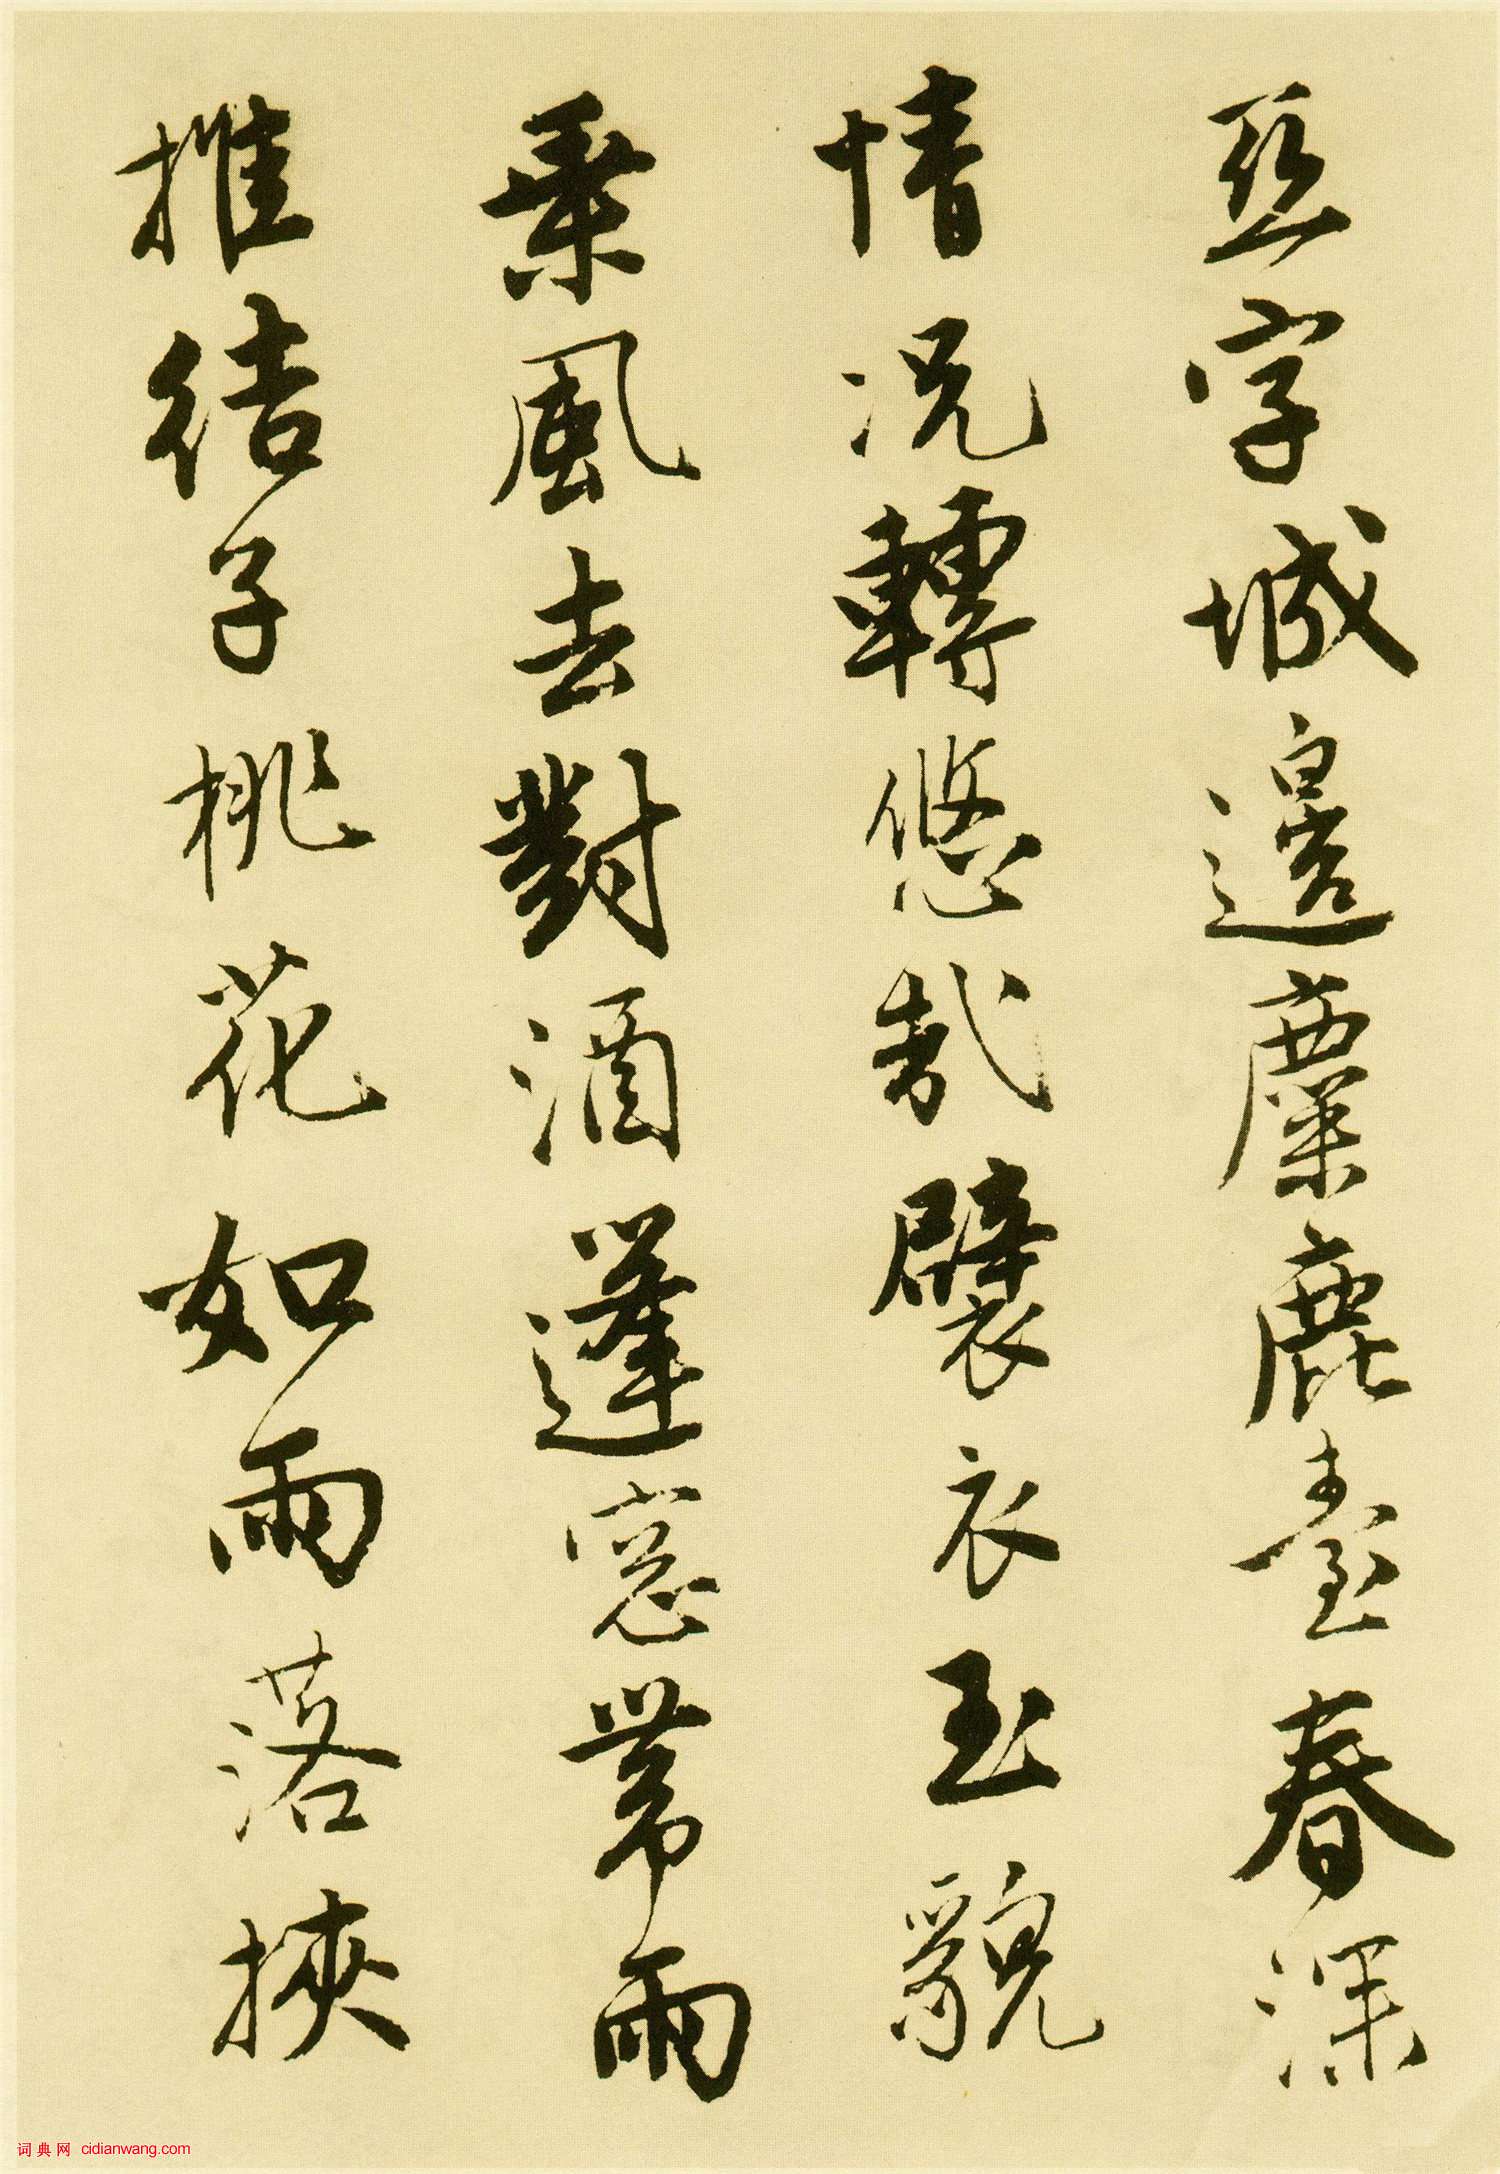 亞字城邊麋鹿臺春深
情況轉悠哉襞衣玉貌
乘風去對酒蓬窓帶雨
推結子桃花如雨落挾
词典网 cidianwang.com